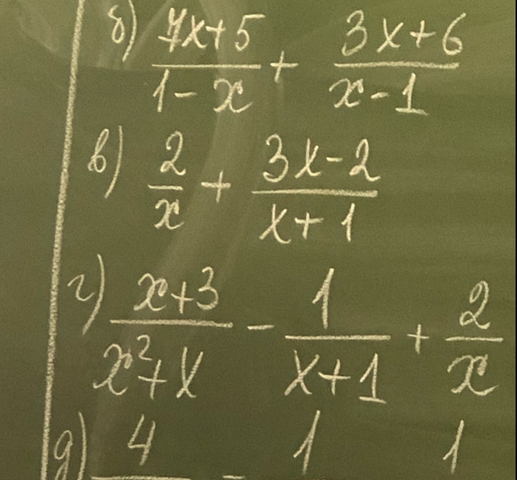 б) (7x+5)/(1-x) + (3x+6)/(x-1)
в) 2/x + (3x-2)/(x+1)
г) (x+3)/(x²+x) - 1/(x+1) + 2/x
д) 4 - 1 1